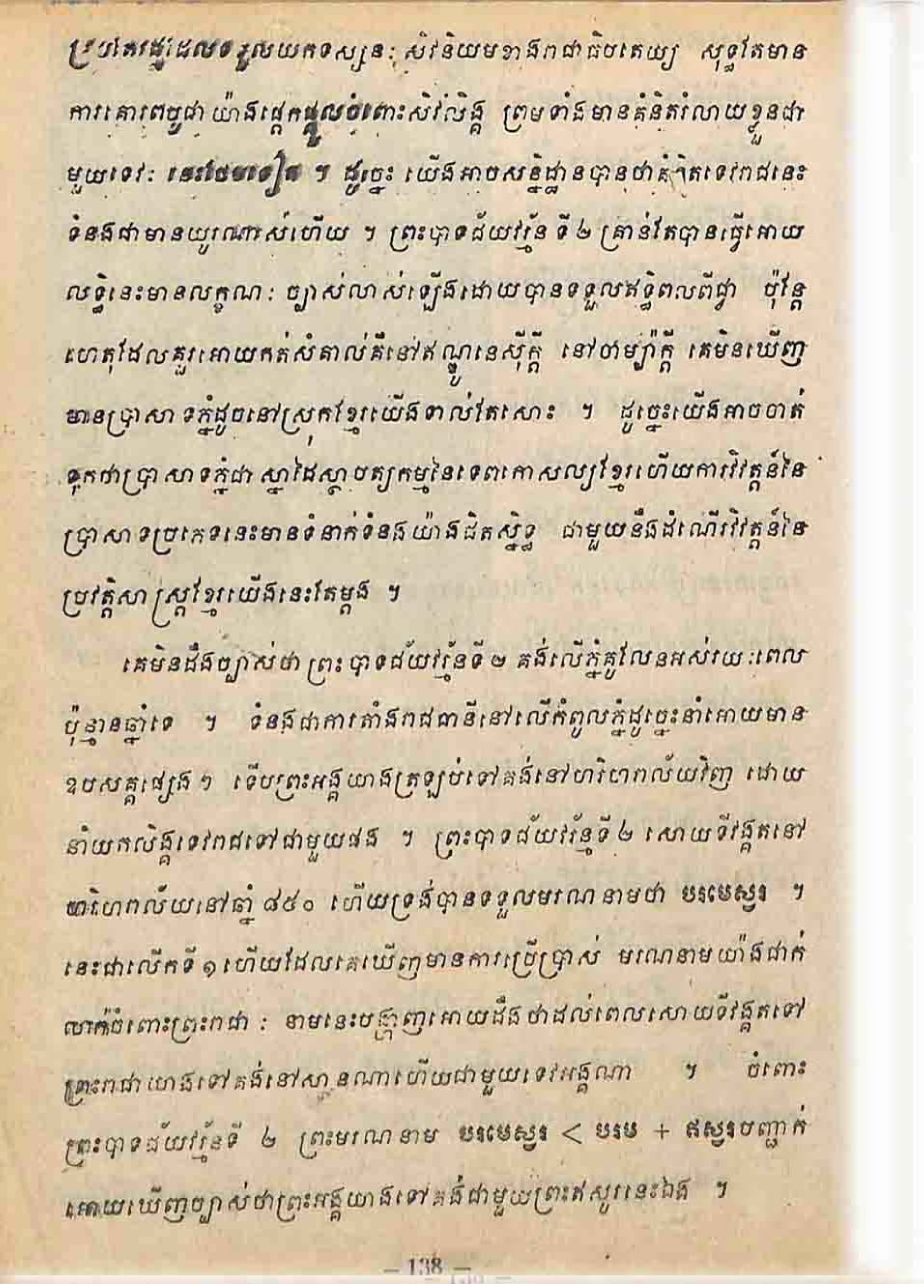 ប្រុបតែរដ្ឋដែលទទួលយកទស្សនៈសិវនិយមខាងរាជាធិបតេយ្យ សុទ្ធតែមាន
ការគោរពបូជាយ៉ាងផ្ដេកផ្ដួលចំពោះសិវលិង្គ ព្រមទាំងមានគំនិតរំលាយខ្លួនជា
មួយទេវៈនេះថែមទៀត ។ ដូច្នេះ យើងអាចសន្និដ្ឋានបានថាគំនិតទេវរាជនេះ
ទំនងជាមានយូរណាស់ហើយ ។ ព្រះបាទជ័យវរ្ម័ន ទី ២ គ្រាន់តែបានធ្វើអោយ
លទ្ធិនេះមានលក្ខណៈច្បាស់លាស់ឡើងដោយបានទទួលឥទ្ធិពលពីជ្វា ប៉ុន្តែ
ហេតុដែលគួរអោយកត់សំគាល់គឺនៅឥណ្ឌូនេស៊ីក្ដី នៅចាម្ប៉ាក្ដី គេមិនឃើញ
មានប្រាសាទភ្នំដូចនៅស្រុកខ្មែរយើងទាល់តែសោះ ។ ដូច្នេះយើងអាចចាត់
ទុកថាប្រាសាទភ្នំជាស្នាដៃស្ថាបត្យកម្មនៃទេពកោសល្យខ្មែរហើយការវិវត្តន៍នៃ
ប្រាសាទប្រភេទនេះមានទំនាក់ទំនងយ៉ាងជិតស្និទ្ធ ជាមួយនឹងដំណើរវិវត្តន៍នៃ
ប្រវត្តិសាស្ត្រខ្មែរយើងនេះតែម្ដង ។
គេមិនដឹងច្បាស់ថា ព្រះបាទជ័យវរ្ម័នទី ២ គង់លើភ្នំគូលែនអស់រយៈពេល
ប៉ុន្មានឆ្នាំទេ ។ ទំនងជាការតាំងរាជធានីនៅលើកំពូលភ្នំដូច្នេះនាំអោយមាន
ឧបសគ្គផ្សេងៗ ទើបព្រះអង្គយាងត្រឡប់ទៅគង់នៅហរិហរាល័យវិញ ដោយ
នាំយកលិង្គទេវរាជទៅជាមួយផង ។ ព្រះបាទជ័យវរ្ម័នទី ២ សោយទីវង្គតនៅ
ហរិហរាល័យនៅឆ្នាំ ៨៥០ ហើយទ្រង់បានទទួលមរណនាមថា បរមេស្វរ ។
នេះជាលើកទី ១ ហើយដែលគេឃើញមានការប្រើប្រាស់ មរណនាមយ៉ាងជាក់
លាក់ចំពោះព្រះរាជា : នាមនេះបង្ហាញអោយដឹងថាដល់ពេលសោយទីវង្គតទៅ
ព្រះរាជាយាងទៅគង់នៅស្ថានណាហើយជាមួយទេវអង្គណា ។ ចំពោះ
ព្រះបាទជ័យវរ្ម័នទី ២ ព្រះមរណនាម បរមេស្វរ < បរម + ឥស្វរបញ្ជាក់
អោយឃើញច្បាស់ថាព្រះអង្គយាងទៅគង់ជាមួយព្រះឥសូរនេះឯង ។
– 138 –